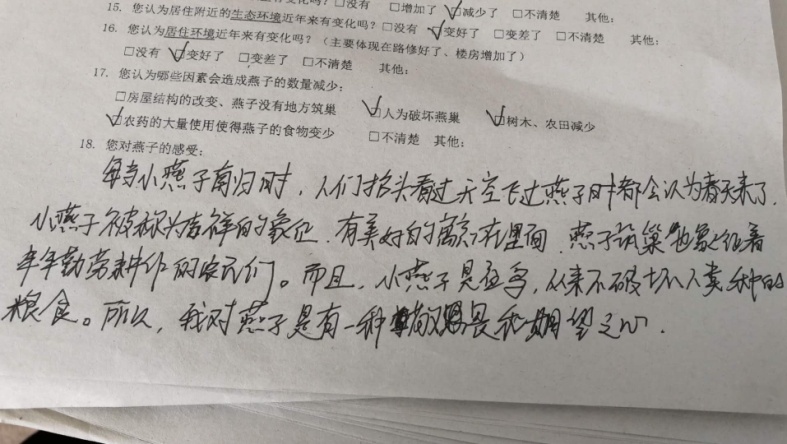 有变化吗？□没有 □增加了 ☑减少了 □不清楚 其他:
15. 您认为居住附近的生态环境近年来有变化吗？□没有 ☑变好了 □变差了 □不清楚 其他:
16. 您认为居住环境近年来有变化吗？（主要体现在路修好了、楼房增加了）
□没有 ☑变好了 □变差了 □不清楚 其他:
17. 您认为哪些因素会造成燕子的数量减少:
□房屋结构的改变、燕子没有地方筑巢 ☑人为破坏燕巢 ☑树木、农田减少
☑农药的大量使用使得燕子的食物变少 □不清楚 其他:
18. 您对燕子的感受:
每当小燕子南归时，人们抬头看过天空飞过燕子时都会认为春天来了.
小燕子被称为吉祥的象征.有美好的寓意在里面.燕子筑巢也象征着
年年勤劳耕作的农民们。而且，小燕子是益鸟，从来不破坏人类种的
粮食。所以，我对燕子是有一种敬畏和期望之心.